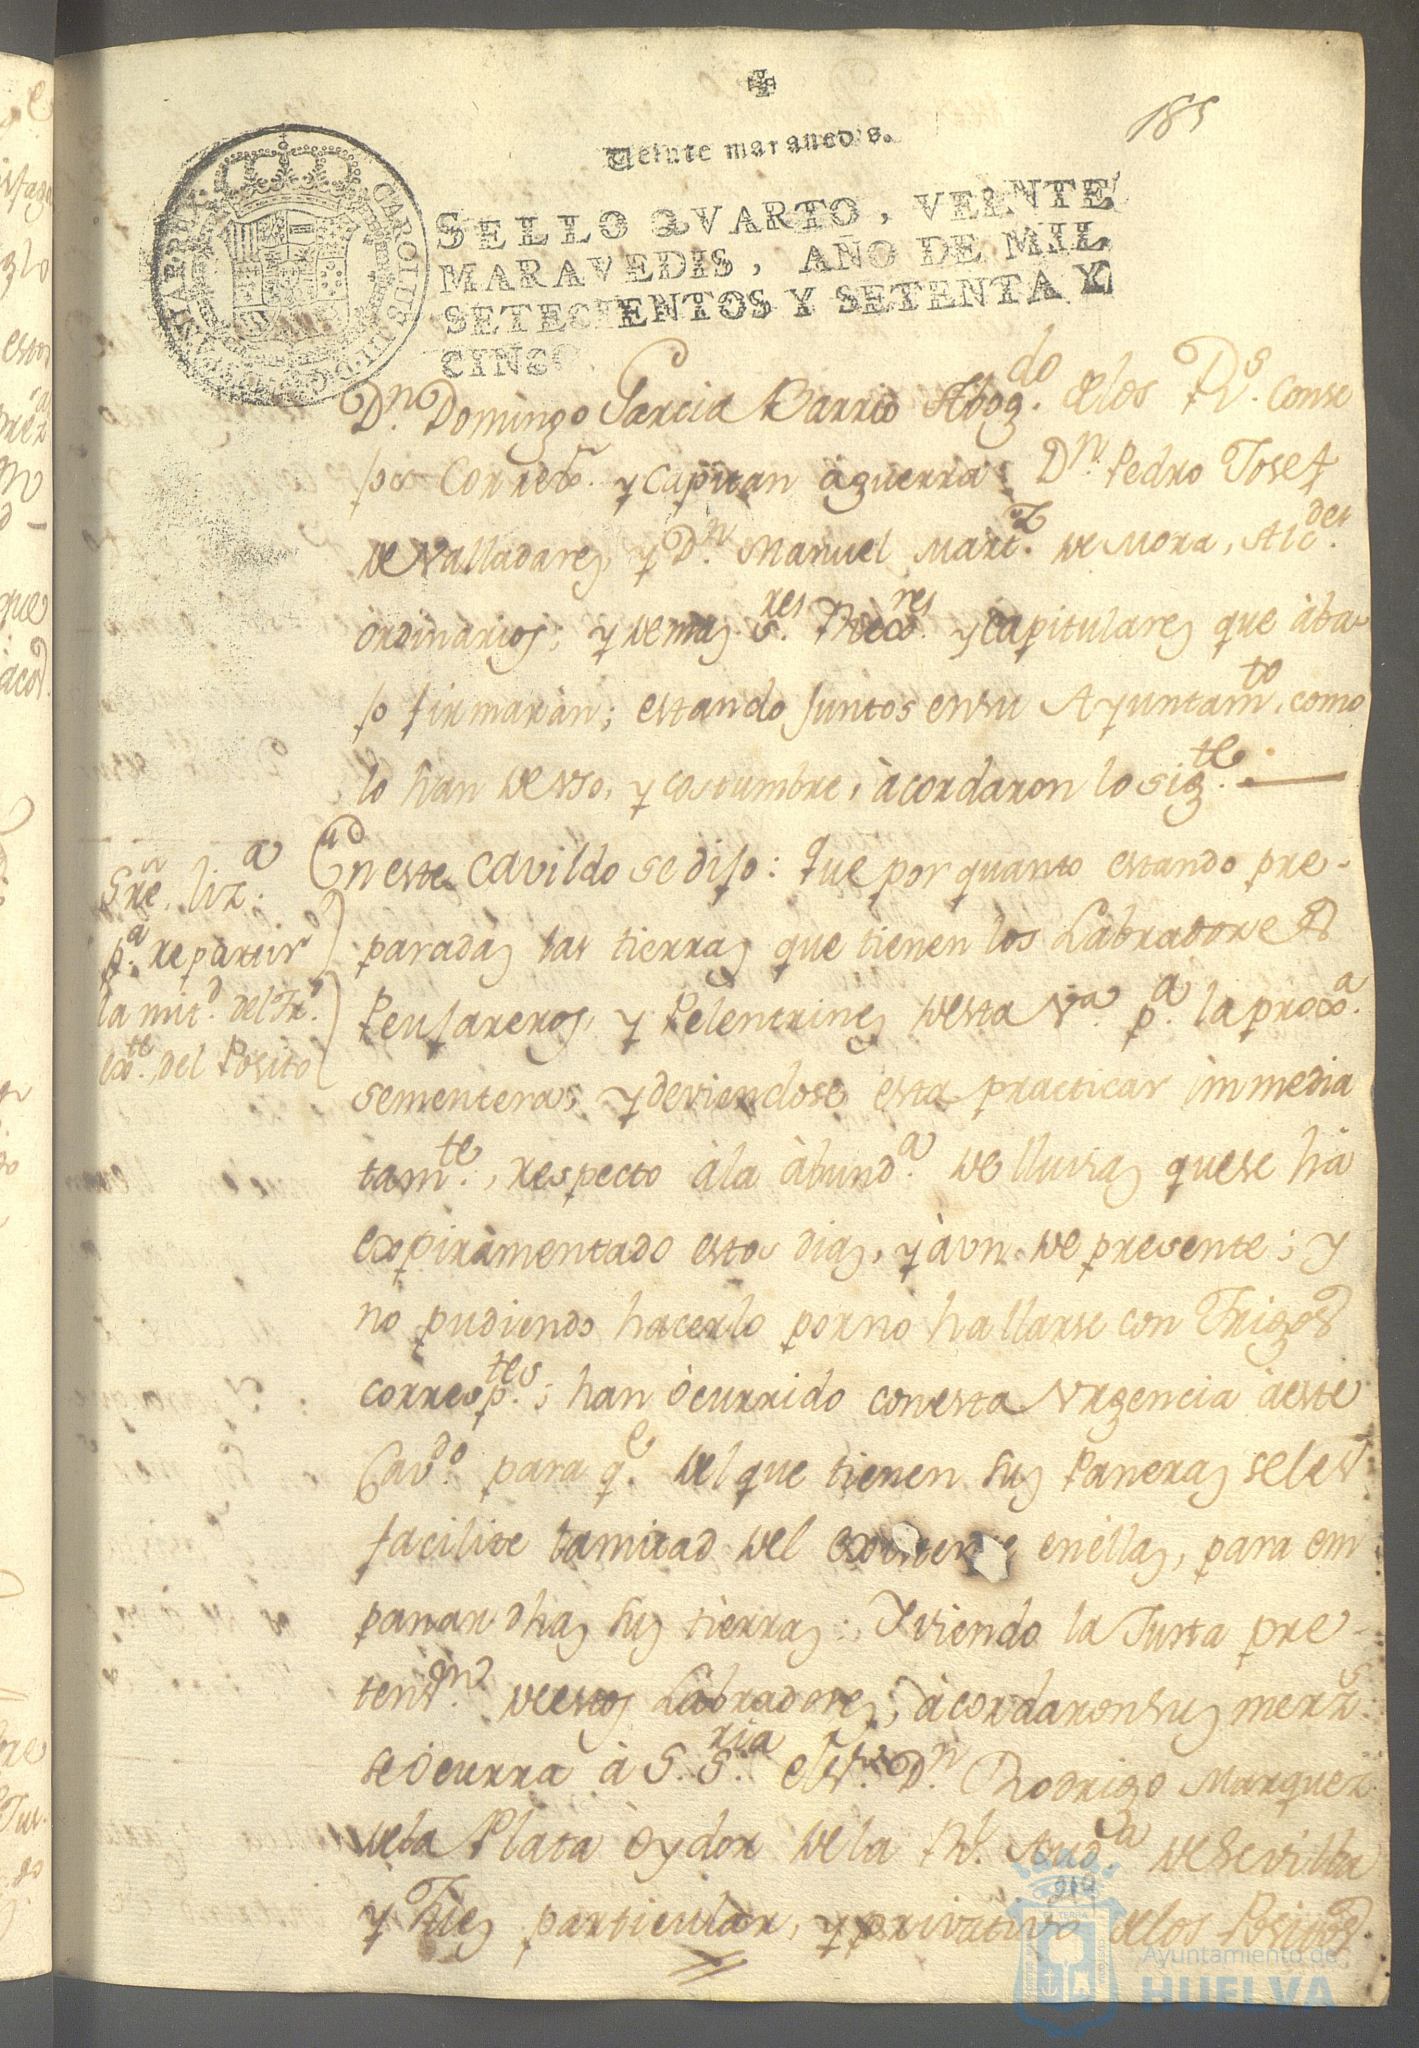 185
Veinte maravedis.
SELLO QVARTO, VEINTE
MARAVEDIS, AÑO DE MIL
SETECIENTOS Y SETENTA Y
CINCO
CAROLUS III D G
Dn. Domingo Garcia Barrio Abogdo. de los Rs. Conse
jos Correxr. y Capitan àguerra; Dn. Pedro Josef
de Valladares, y Dn. Manuel Martz. de Mora, Alcdes.
òrdinarios; y demas sres. Rexres. y capitulares que àba-
jo firmaràn; estando juntos en su Ayuntamto. como
lo han de uso, y costumbre, àcordaron lo sigte.
En este Cavildo se dijo: que por quanto estando pre-
paradas las tierras que tienen los Labradores
Peujareros, y Pelentrines desta Va. pa. la proxa.
sementera; y deviendose esta practicar immedia
tamte., respecto àla àbunda. de lluvias que se hà
expiramentado estos dias, y àun de presente; y
no pudiendo hacerlo por no hallarse con Trigos
corresptes.; han òcurrido con esta Urgencia àeste
Cavdo. para qe. del que tienen sus Paneras se les
facilite la mitad del existente en èllas, para em
panar dhas sus tierras: Y viendo la Justa pre-
tensn. de estos Labradores, àcordaron sus merzs.
se òcurra à S. Sria. el Sr. Dn. Rodrigo Marquez
de la Plata òydor de la Rl. Auda. de Sevilla
y Juez particular, y privativo de los Positos
Sre. liza.
pa. repartir
la mitd. del Tr.
exte. del Posito
Ayuntamiento de
HUELVA